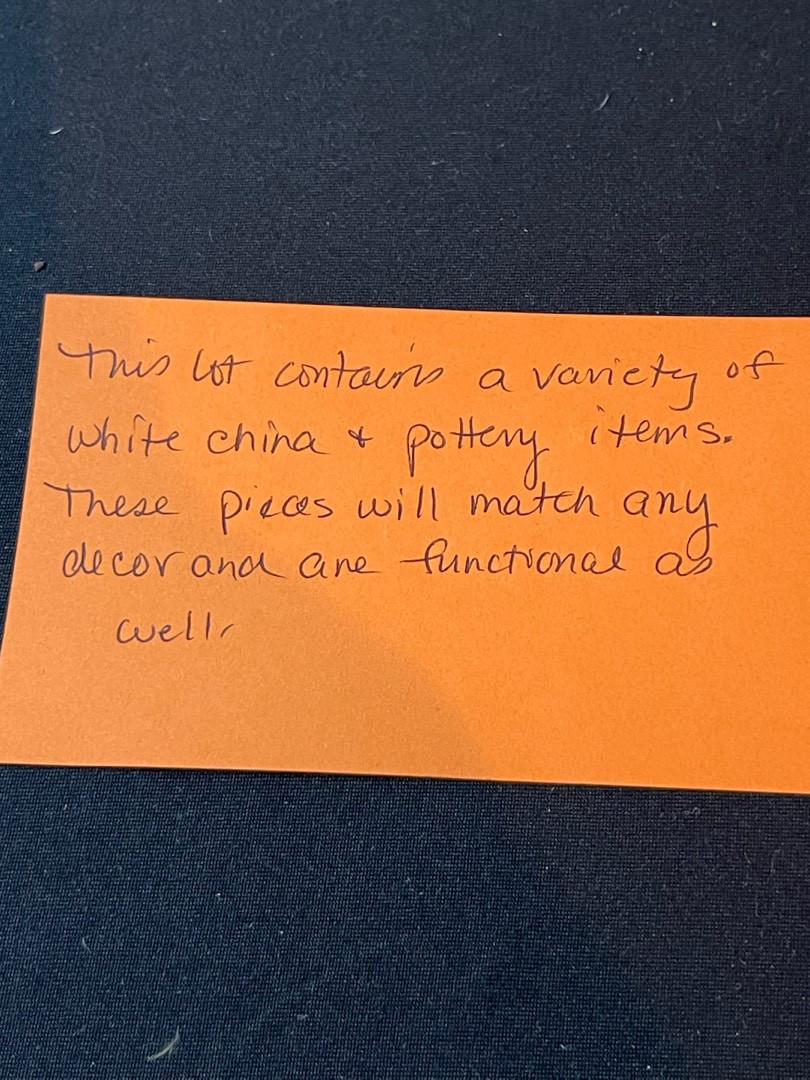 This lot contains a variety of
white china + pottery items.
These pieces will match any
decor and are functional as
well.